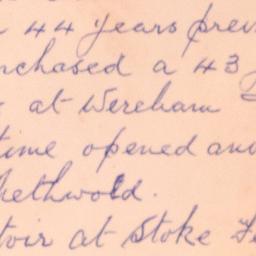 44 years prev
rchased a 43
at Wereham
time opened and
hethwold.
toir at Stoke Fe